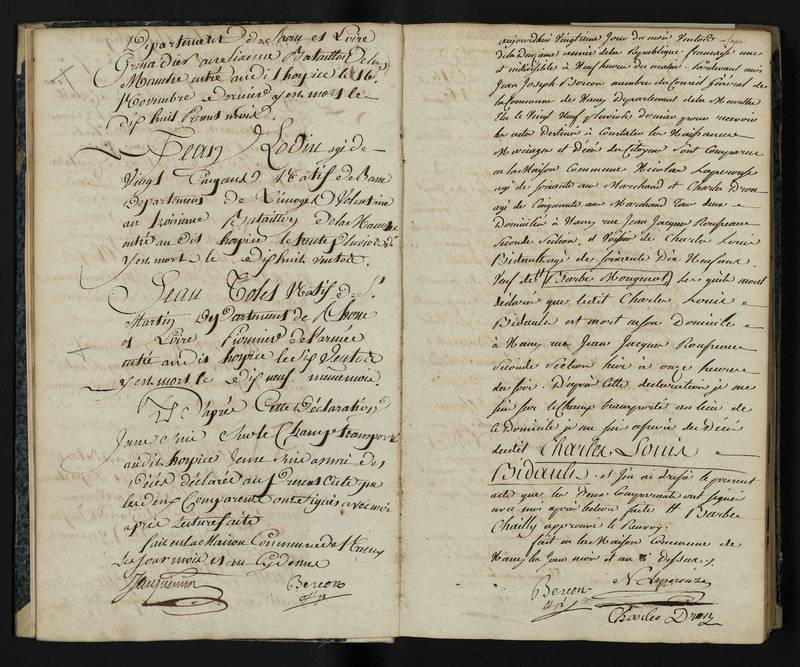 Département de Rhone et Loire
Grenadier au sixieme Bataillon de la
Manche entré audit hospice le 16
Novembre dernier y est mort le
dix huit présent mois.
Jean Lodin agé de
Vingt Cinq ans Natif de
Departement de Limoges Volontaire
au troisieme Bataillon de la
entré au dit hospice le pluviose
y est mort le dix huit ventose.
Jean Coles Natif de St
Martin Departement de Rhone
et Loire Pionnier de l'armée
entré au dit hospice le dix ventose
y est mort le dix neuf même mois.
D'après Cette Déclaration
Je me suis sur le Champ transporté
audit hospice Je me suis assuré des
Décès déclarés au present acte que
les deux Comparents ont signés avec moi
après lecture faite
fait en la Maison Commune de Nancy
Les Jour mois et an cy dessus
Jacquemin Bercon
off p
aujourdhui vingtieme Jour du mois Ventose
de la Deuxieme année de la République française une
et indivisible à Neuf heures du matin. Pardevant moi
Jean Joseph Bercon membre du Conseil Général de
la Commune de Nancy Departement de la Meurthe
Elu le Vingt Neuf pluviose dernier pour recevoir
les actes destinés à Constater les Naissances
Mariages et Décès des Citoyens Sont Comparus
en la Maison Commune Nicolas Laperouze
agé de soixante ans Marchand et Charles Dron
agé de Cinquante ans Marchand Tous deux
Domiciliés à Nancy rue Jean Jacques Rousseau
Seconde Section, et Voisins de Charles Louis
Bidault agé de soixante Dix Neuf ans
Veuf de Barbe Mougenot, Lesquels m'ont
déclaré que ledit Charles Louis
Bidault est mort en son Domicile
à Nancy rue Jean Jacques Rousseau
Seconde Section hier à onze heures
du soir. D'après Cette déclaration je me
suis sur le Champ transporté au lieu de
ce Domicile je me suis assuré du Décès
dudit Charles Louis
Bidault. et J'en ai dressé le présent
acte que les deux Comparants ont signé
avec moi après lecture faite # Barbe
Chailly approuvé le Renvoy.
fait en la Maison Commune de
Nancy les Jour mois et an dessus.
Bercon N Laperouze
off p
Charles Dron